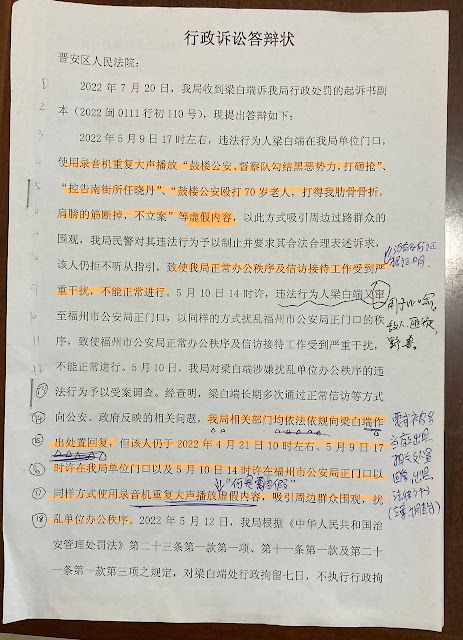 行政诉讼答辩状
晋安区人民法院：
2022 年 7 月 20 日，我局收到梁白端诉我局行政处罚的起诉书副
本（2022 闽 0111 行初 110 号），现提出答辩如下：
2022 年 5 月 9 日 17 时左右，违法行为人梁白端在我局单位门口，
使用录音机重复大声播放“鼓楼公安、督察队勾结黑恶势力，打砸抢”、
“控告南街所任晓丹”、“鼓楼公安殴打 70 岁老人，打得我肋骨骨折，
肩膀的筋断掉，不立案”等虚假内容，以此方式吸引周边过路群众的
围观，我局民警对其违法行为予以制止并要求其合法合理表述诉求，
该人仍拒不听从指引，致使我局正常办公秩序及信访接待工作受到严
重干扰，不能正常进行。5 月 10 日 14 时许，违法行为人梁白端又窜
至福州市公安局正门口，以同样的方式扰乱福州市公安局正门口的秩
序，致使福州市公安局正常办公秩序及信访接待工作受到严重干扰，
不能正常进行。5 月 10 日，我局对梁白端涉嫌扰乱单位办公秩序的违
法行为予以受案调查。经查明，梁白端长期多次通过正常信访等方式
向公安、政府反映的相关问题，我局相关部门均依法依规向梁白端作
出处置回复，但该人仍于 2022 年 4 月 21 日 10 时左右、5 月 9 日 17
时许在我局单位门口以及 5 月 10 日 14 时许在福州市公安局正门口以
“何是虚假”
同样方式使用录音机重复大声播放虚假内容，吸引周边群众围观，扰
乱单位办公秩序。2022 年 5 月 12 日，我局根据《中华人民共和国治
安管理处罚法》第二十三条第一款第一项、第十一条第一款及第二十
一条第一款第三项之规定，对梁白端处行政拘留七日，不执行行政拘
用于以
敌人
野兽
要求
出处
法律